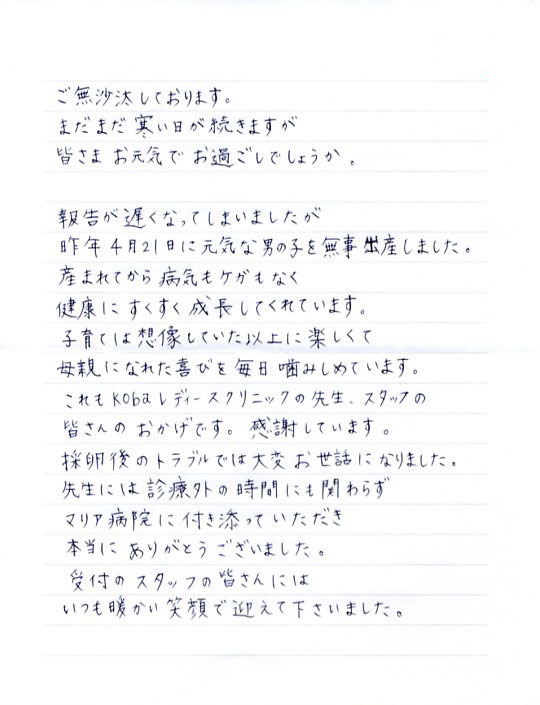 ご無沙汰しております。
まだまだ寒い日が続きますが
皆さま お元気で お過ごしでしょうか。
報告が遅くなってしまいましたが
昨年4月21日に元気な男の子を無事出産しました。
産まれてから 病気もケガもなく
健康に すくすく 成長してくれています。
子育ては想像していた以上に楽しくて
母親になれた喜びを毎日噛みしめています。
これもKobaレディースクリニックの先生、スタッフの
皆さんの おかげです。 感謝しています。
採卵後のトラブルでは大変お世話になりました。
先生には診療外の時間にも関わらず
マリア病院に付き添っていただき
本当に ありがとうございました。
受付の スタッフの皆さんには
いつも暖かい笑顔で迎えて下さいました。